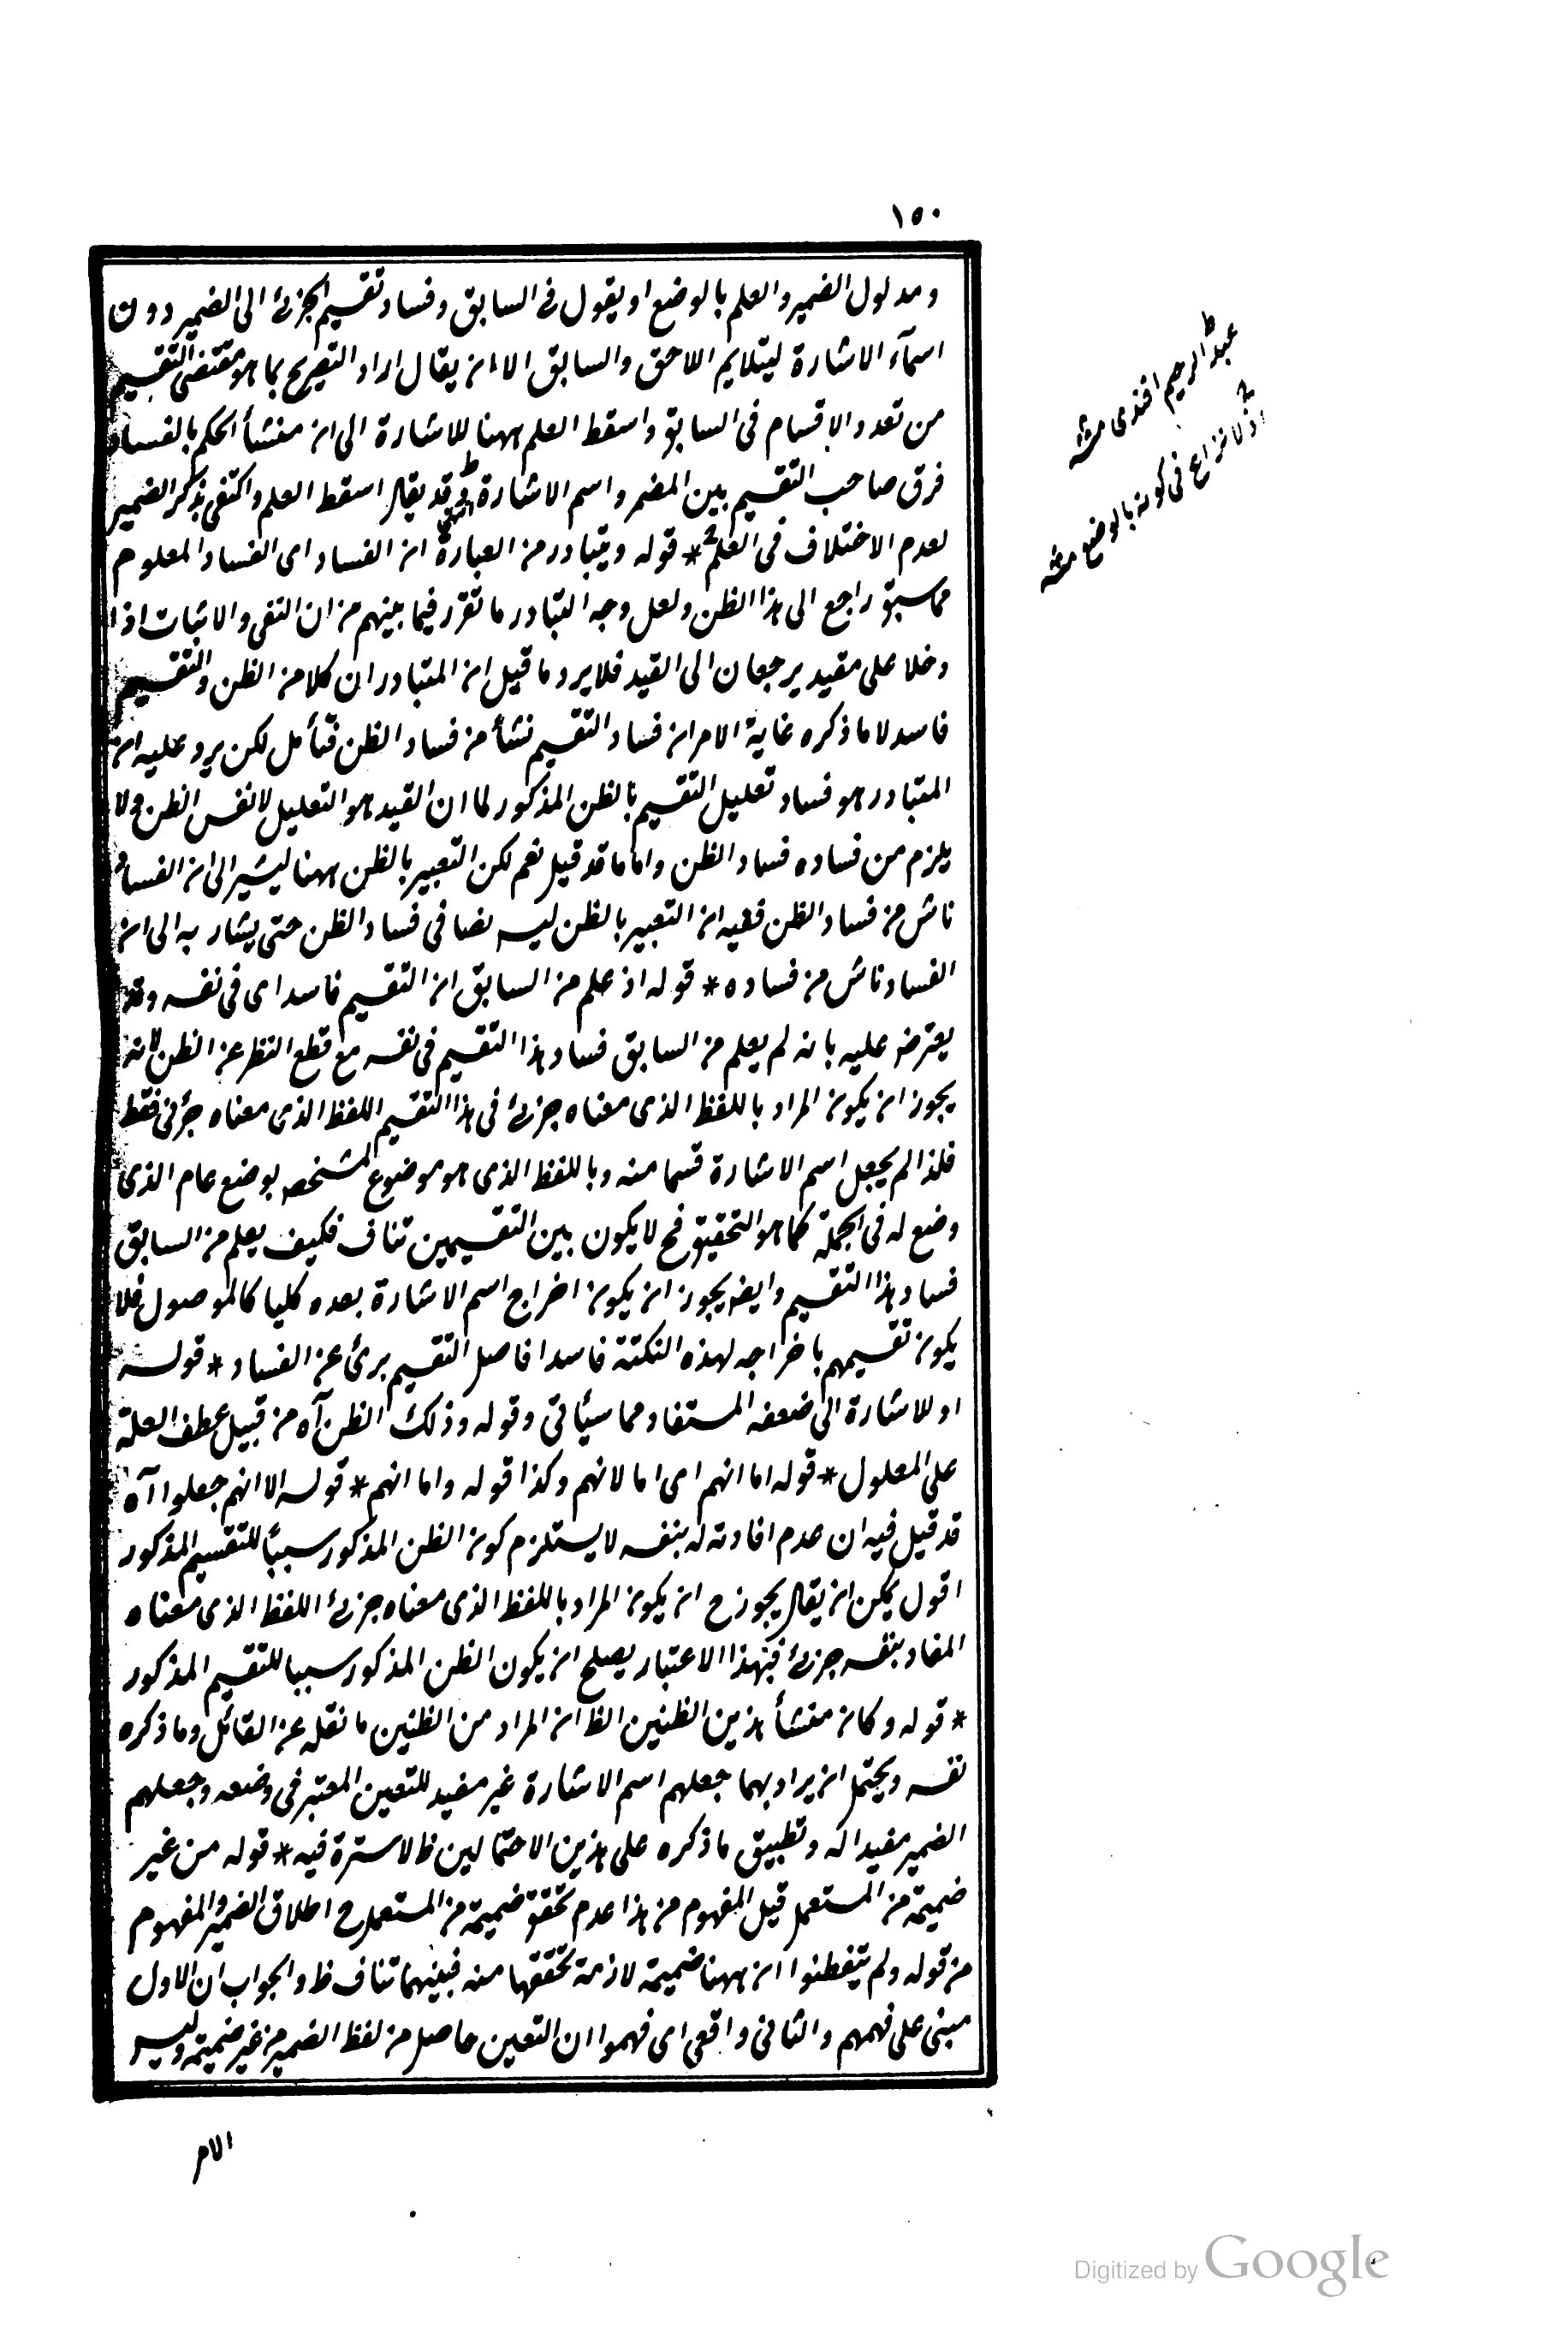 ١٥٠
ومدلول الضمير والعلم بالوضع او يقول فى السابق وفساد تقسيم الجزئ الى الضمير دون
اسمآء الاشارة ليتلايم اللاحق والسابق الا ان يقال اراد التصريح بما هو مقتضى التقسيم
من تعدد الاقسام فى السابق واسقط العلم ههنا للاشارة الى ان منشأ الحكم بالفساد
فرق صاحب التقسيم بين المضمر واسم الاشارة وقد يقال اسقط العلم واكتفى بذكر الضمير
لعدم الاختلاف فى العلم * قوله ويتبادر من العبارة ان الفساد اى الفساد المعلوم
مما سبق راجع الى هذا الظن ولعل وجه التبادر ما تقرر فيما بينهم من ان النفى والاثبات اذا
دخلا على مقيد يرجعان الى القيد فلا يرد ما قيل ان المتبادر ان كلا من الظن والتقسيم
فاسد لا ما ذكره غاية الامر ان فساد التقسيم نشأ من فساد الظن فتأمل لكن يرد عليه ان
المتبادر هو فساد تعليل التقسيم بالظن المذكور لما ان القيد هو التعليل لا نفس الظن ولا
يلزم من فساده فساد الظن واما ما قد قيل نعم لكن التعبير بالظن ههنا ليشير الى ان الفساد
ناش من فساد الظن ففيه ان التعبير بالظن ليس نصا فى فساد الظن حتى يشار به الى ان
الفساد ناش من فساده * قوله اذ علم من السابق ان التقسيم فاسد اى فى نفسه وقد
يعترض عليه بانه لم يعلم من السابق فساد هذا التقسيم فى نفسه مع قطع النظر عن الظن لانه
يجوز ان يكون المراد باللفظ الذى معناه جزئ فى هذا التقسيم اللفظ الذى معناه جزئى فقط
فلذا لم يجعل اسم الاشارة قسما منه وباللفظ الذى هو موضوع لمشخص بوضع عام الذى
وضع له فى الجملة كما هو التحقيق فح لا يكون بين التقسيمين تناف فكيف يعلم من السابق
فساد هذا التقسيم وايضا يجوز ان يكون اخراج اسم الاشارة بعده كليا كالموصول فلا
يكون تقسيمهم باخراجه لهذه النكتة فاسدا فاصل التقسيم برئ عن الفساد * قوله
او للاشارة الى ضعفه المستفاد مما سيأتى وقوله وذلك الظن آه من قبيل عطف العلة
على المعلول * قوله اما انهم اى اما لانهم وكذا قوله واما انهم * قوله الا انهم جعلوا آه
قد قيل فيه ان عدم افادته له بنفسه لا يستلزم كون الظن المذكور سببًا للتقسيم المذكور
اقول يمكن ان يقال يجوز ح ان يكون المراد باللفظ الذى معناه جزئ اللفظ الذى معناه
المفاد بنفسه جزئ فبهذا الاعتبار يصلح ان يكون الظن المذكور سببا للتقسيم المذكور
* قوله وكان منشأ هذين الظنين الظ ان المراد من الظنين ما نقله عن القائل وما ذكره
نفسه ويحتمل ان يراد بهما جعلهم اسم الاشارة غير مفيد للتعين المعتبر فى وضعه وجعلهم
الضمير مفيدا له وتطبيق ما ذكره على هذين الاحتمالين ظ لا سترة فيه * قوله من غير
ضميمة من المستعمل قيل المفهوم من هذا عدم تحقق ضميمة من المستعمل ح اطلاق الضمير والمفهوم
من قوله ولم يتفطنوا ان ههنا ضميمة لازمة تحققها منه فبينهما تناف ظ والجواب ان الاول
مبنى على فهمهم والثانى واقعى اى فهموا ان التعين حاصل من لفظ الضمير من غير ضميمة وليس
الامر
عبد الرحيم افندى منه
اذ لا نزاع فى كونه بالوضع منه
Digitized by Google